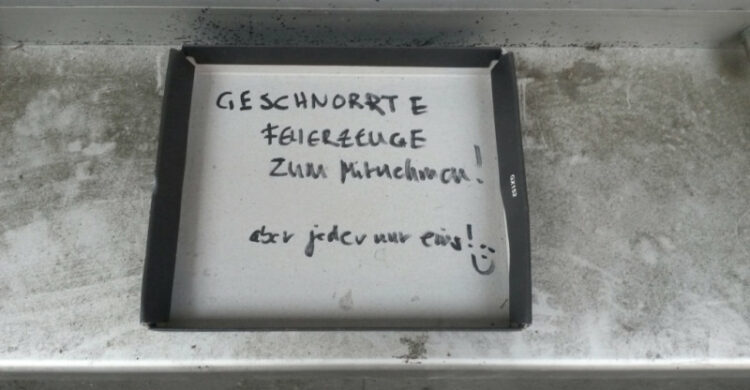 GESCHNORRTE
FEUERZEUGE
ZUM Mitnehmen!
aber jeder nur eins!